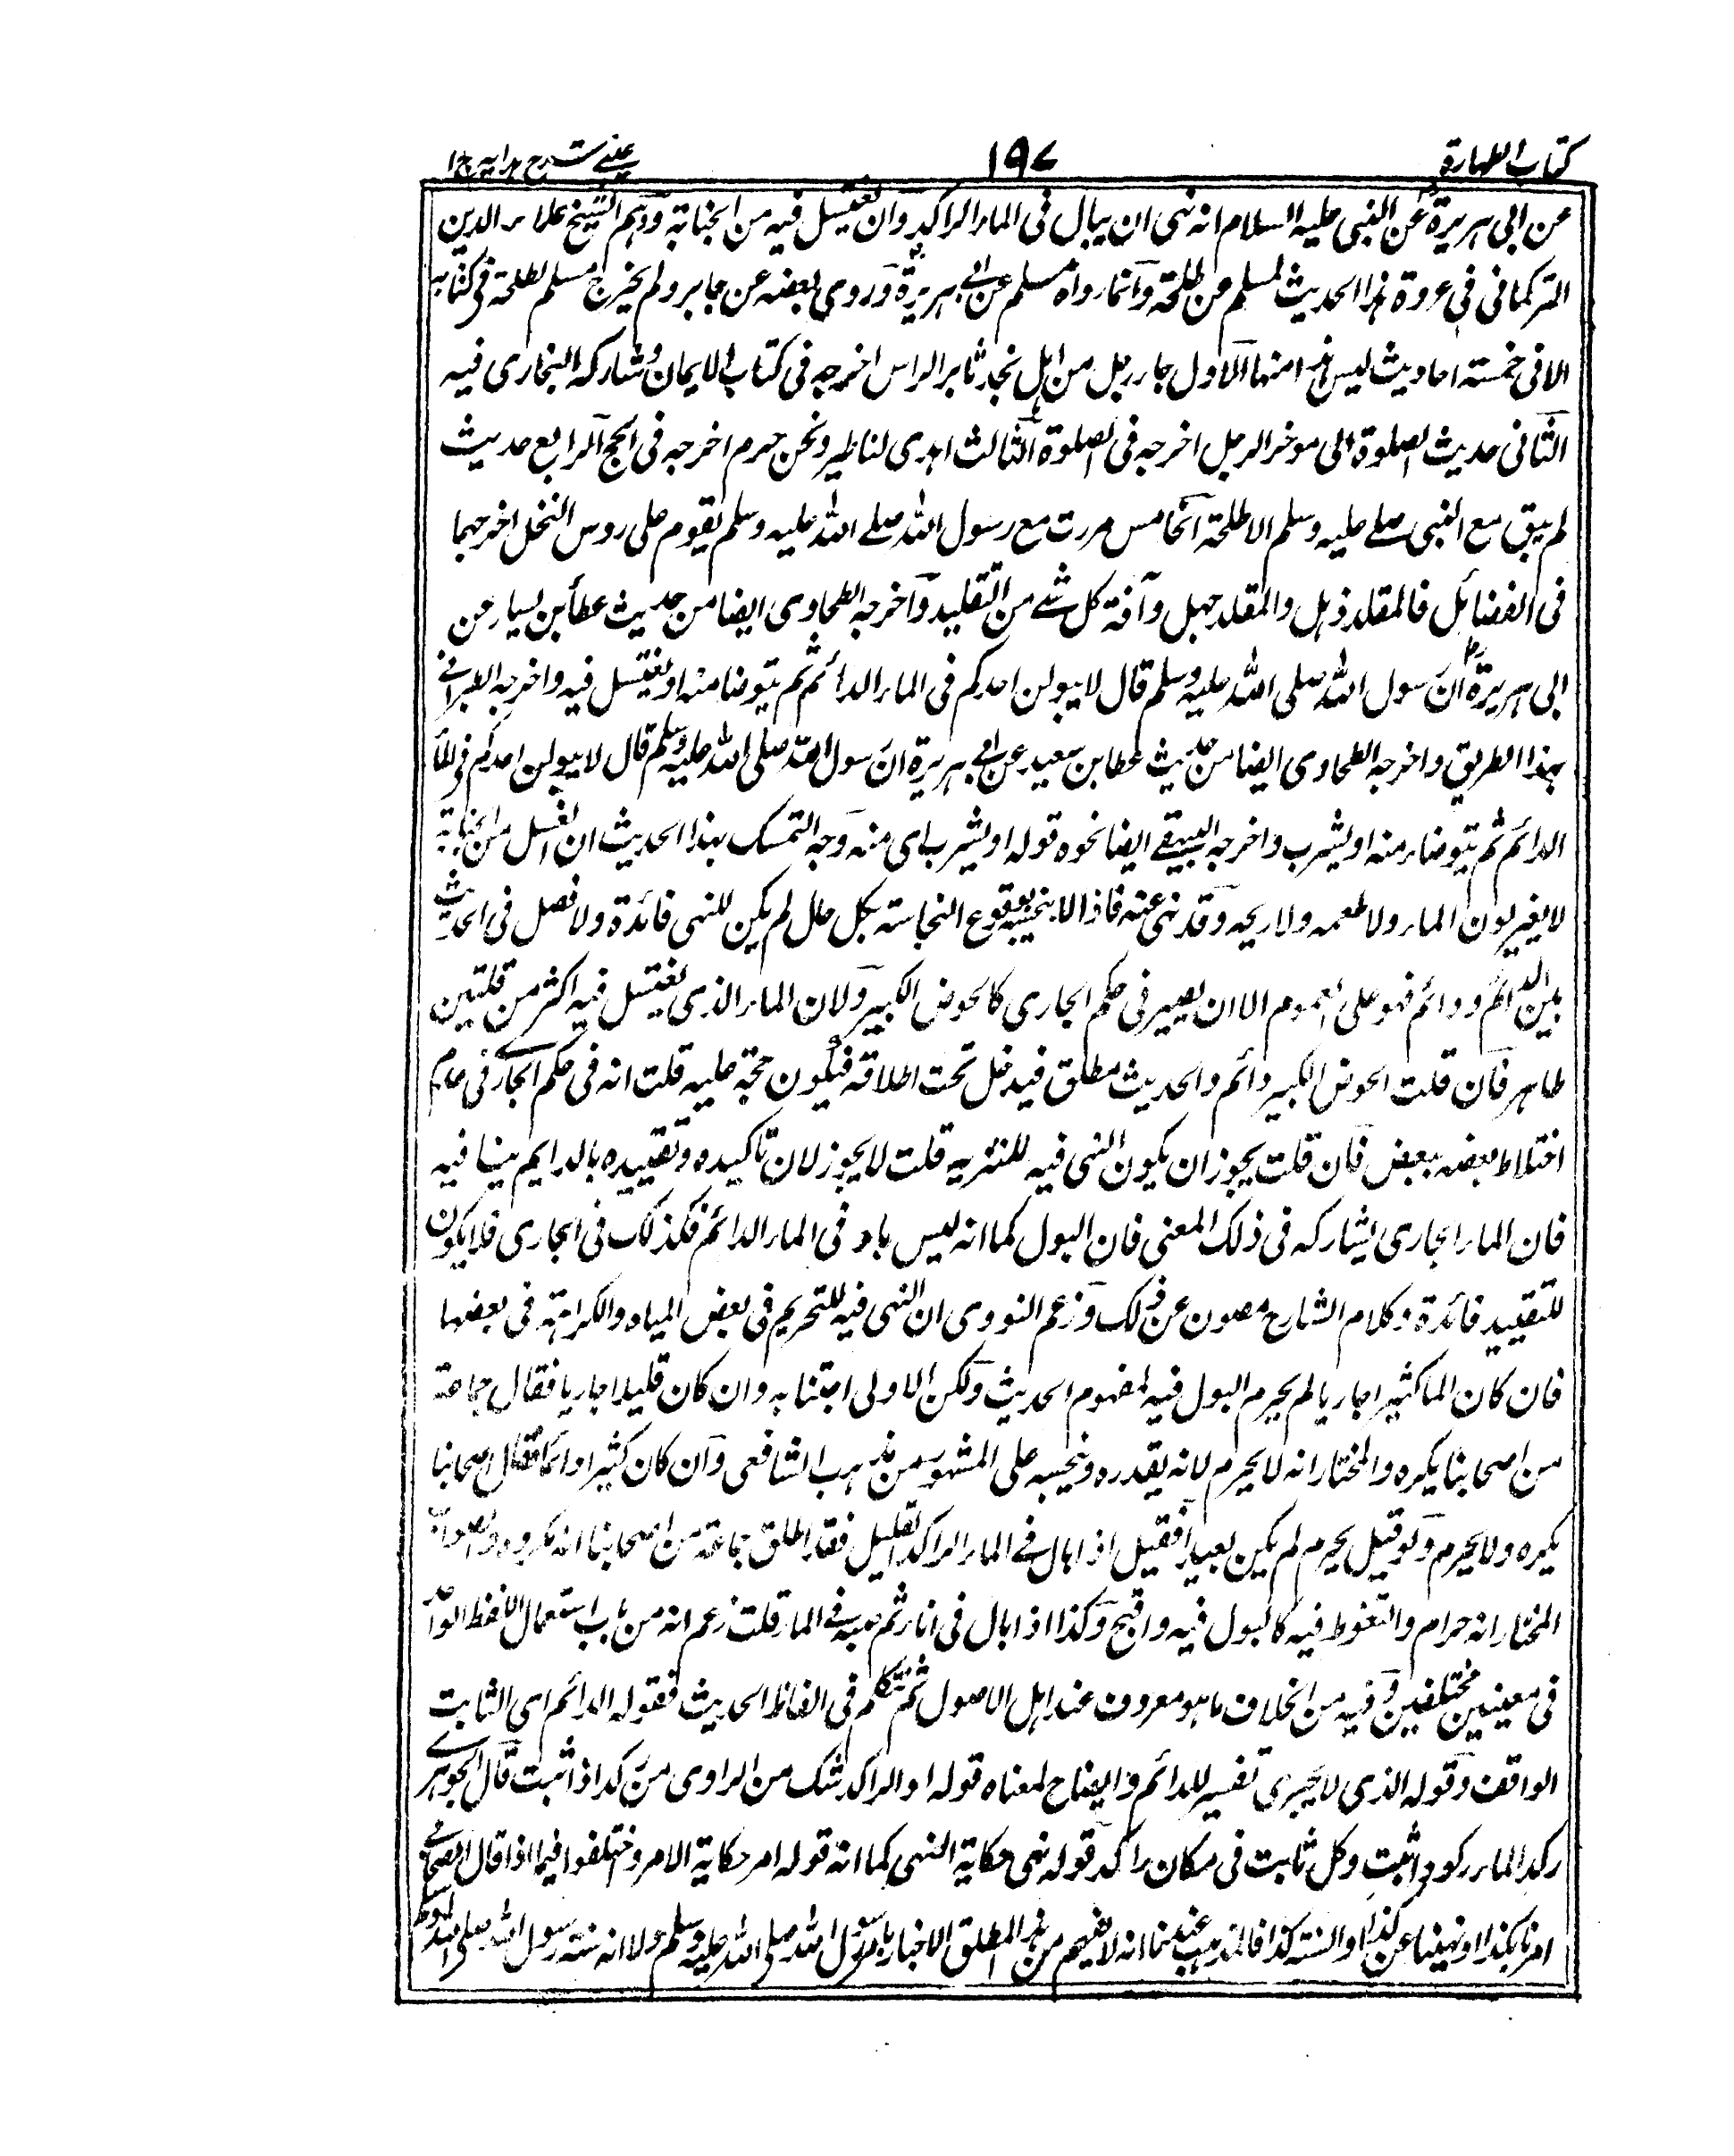 كتاب الطهارة
١٩٧
عينى شرح هدايه ج ١
عن ابى هريرة رض عن النبى عليه السلام انه نهى ان يبال فى الماء الراكد وان يغتسل فيه من الجنابة ووهم الشيخ علاء الدين
التركمانى فى عزوه هذا الحديث لمسلم عن طلحة وانما رواه مسلم عن ابى هريرة رض وروى بعضه عن جابر ولم يخرج مسلم لطلحة فى كتابه
الا فى خمسة احاديث ليس هذا منها الاول جاء رجل من اهل نجد ثائر الراس اخرجه فى كتاب الايمان وشاركه البخارى فيه
الثانى حديث الصلوة الى موخر الرحل اخرجه فى الصلوة الثالث اهدى لنا طير ونحن حرم اخرجه فى الحج الرابع حديث
لم يبق مع النبى صلے عليه وسلم الا طلحة الخامس مررت مع رسول الله صلے الله عليه وسلم بقوم على روس النخل اخرجهما
فى الفضائل فالمقلد ذهل والمقلد جهل وآفة كل شے من التقليد واخرجه الطحاوى ايضا من حديث عطأ بن يسار عن
ابى هريرة رض ان رسول الله صلى الله عليه وسلم قال لا يبولن احدكم فى الماء الدائم ثم يتوضا منه او يغتسل فيه واخرجه الطبرانے
بهذا الطريق واخرجه الطحاوى ايضا من حديث عطا بن سعيد عن ابى هريرة ان رسول الله صلى الله عليه وسلم قال لا يبولن احدكم فى الماء
الدائم ثم يتوضاء منه او يشرب واخرجه البيهقے ايضا نحوه قوله او يشرب اى منه وجه التمسك بهذا الحديث ان الغسل من الجنابة
لا يغير لون الماء ولا طعمه ولا ريحه وقد نهى عنه فاذا لا ينجسه بوقوع النجاسة بكل حال لم يكن للنهى فائدة ولا فصل فى الحديث
بين الدائم ودائم فهو على العموم الا ان يصير فى حكم الجارى كالحوض الكبير ولان الماء الذى يغتسل فيه اكثر من قلتين
طاهر فان قلت الحوض الكبير دائم والحديث مطلق فيدخل تحت اطلاقه فيكون حجة عليه قلت انه فى حكم الجارى فى عدم
اختلاط بعضه ببعض فان قلت يجوز ان يكون النهى فيه للتنزيه قلت لا يجوز لان تاكيده وتقييده بالدايم ينافيه
فان الماء الجارى يشاركه فى ذلك المعنى فان البول كما انه ليس بادب فى الماء الدائم فكذلك فى الجارى فلا يكون
للتقييد فائدة وكلام الشارع مصون عن ذلك وزعم النووى ان النهى فيه للتحريم فى بعض المياه والكراهة فى بعضها
فان كان الما كثيرا جاريا لم يحرم البول فيه لمفهوم الحديث ولكن الاولى اجتنابه وان كان قليلا جاريا فقال جماعة
من اصحابنا يكره والمختار انه لا يحرم لانه يقدره وينجسه على المشهور من مذهب الشافعى وان كان كثيرا دائما فقال اصحابنا
يكره ولا يحرم ولو قيل يحرم لم يكن بعيدا فقيل اذا بال فے الماء الراكد القليل فقد اطلق جماعة من اصحابنا انه مكروه والصواب
المختار انه حرام والتغوط فيه كالبول فيه واقبح وكذا اذا بال فى اناء ثم صبه فے الماء قلت زعم انه من باب استعمال اللفظ الواحد
فى معنيين مختلفين وفيه من الخلاف ما هو معروف عند اهل الاصول ثم نتكلم فى الفاظ الحديث فقوله الدائم اى الثابت
الواقف وقوله الذى لا يجرى تفسير للدائم وايضاح لمعناه قوله او الراكد شك من الراوى من ركد اذا ثبت قال الجوهرے
ركد الماء ركودا ثبت وكل ثابت فى مكان راكد قوله نهى حكاية النهى كما ان قوله امر حكاية الامر واختلفوا فيما اذا قال الصحابے
امرنا بكذا او نهينا عن كذا او السنة كذا فالمذهب عندنا انه لا يفهم من هذا المطلق الاخبار بامر رسول الله صلى الله عليه وسلم ولا انه سنة رسول الله صلى الله عليه وسلم